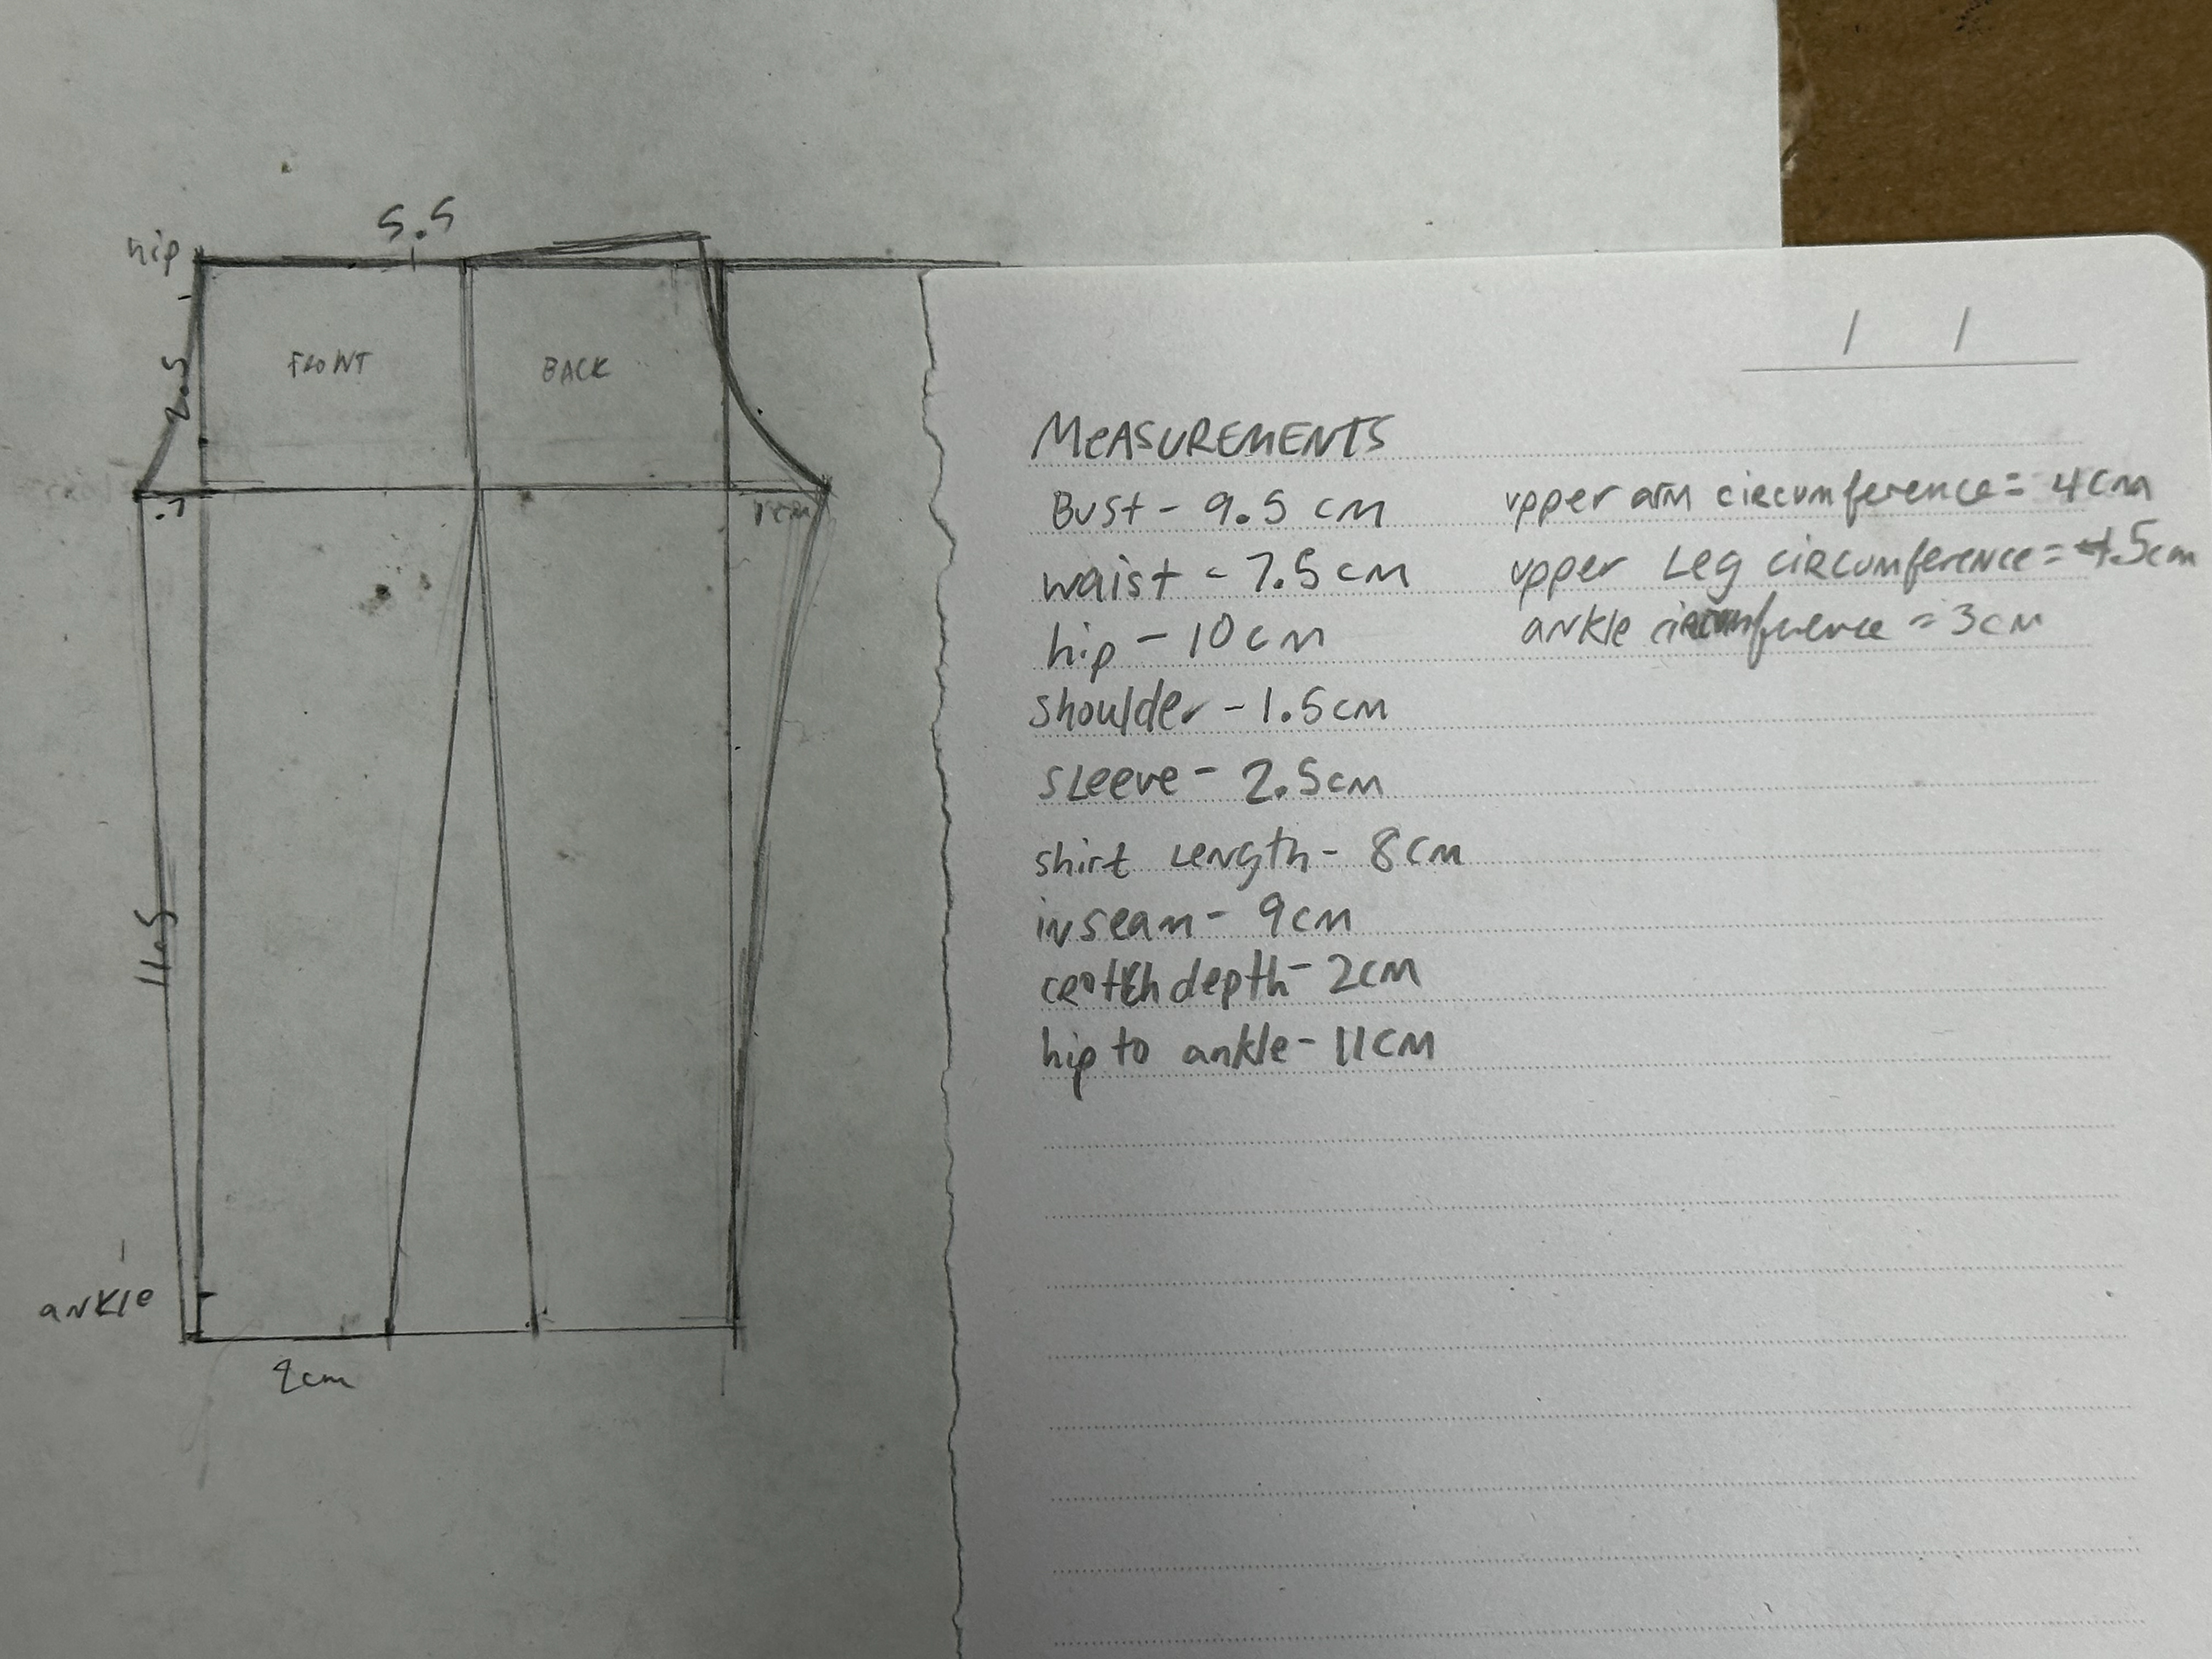 5.5
hip
2.5
FRONT
BACK
.7
1cm
11.5
ankle
2cm
/ /
MeASUREMENTS
Bust - 9.5 cm
waist - 7.5 cm
hip - 10 cm
shoulder - 1.5cm
sleeve - 2.5cm
shirt Length - 8cm
inseam - 9cm
crotch depth - 2cm
hip to ankle - 11cm
upper arm circumference = 4cm
upper Leg circumference = 4.5cm
ankle circumference = 3cm